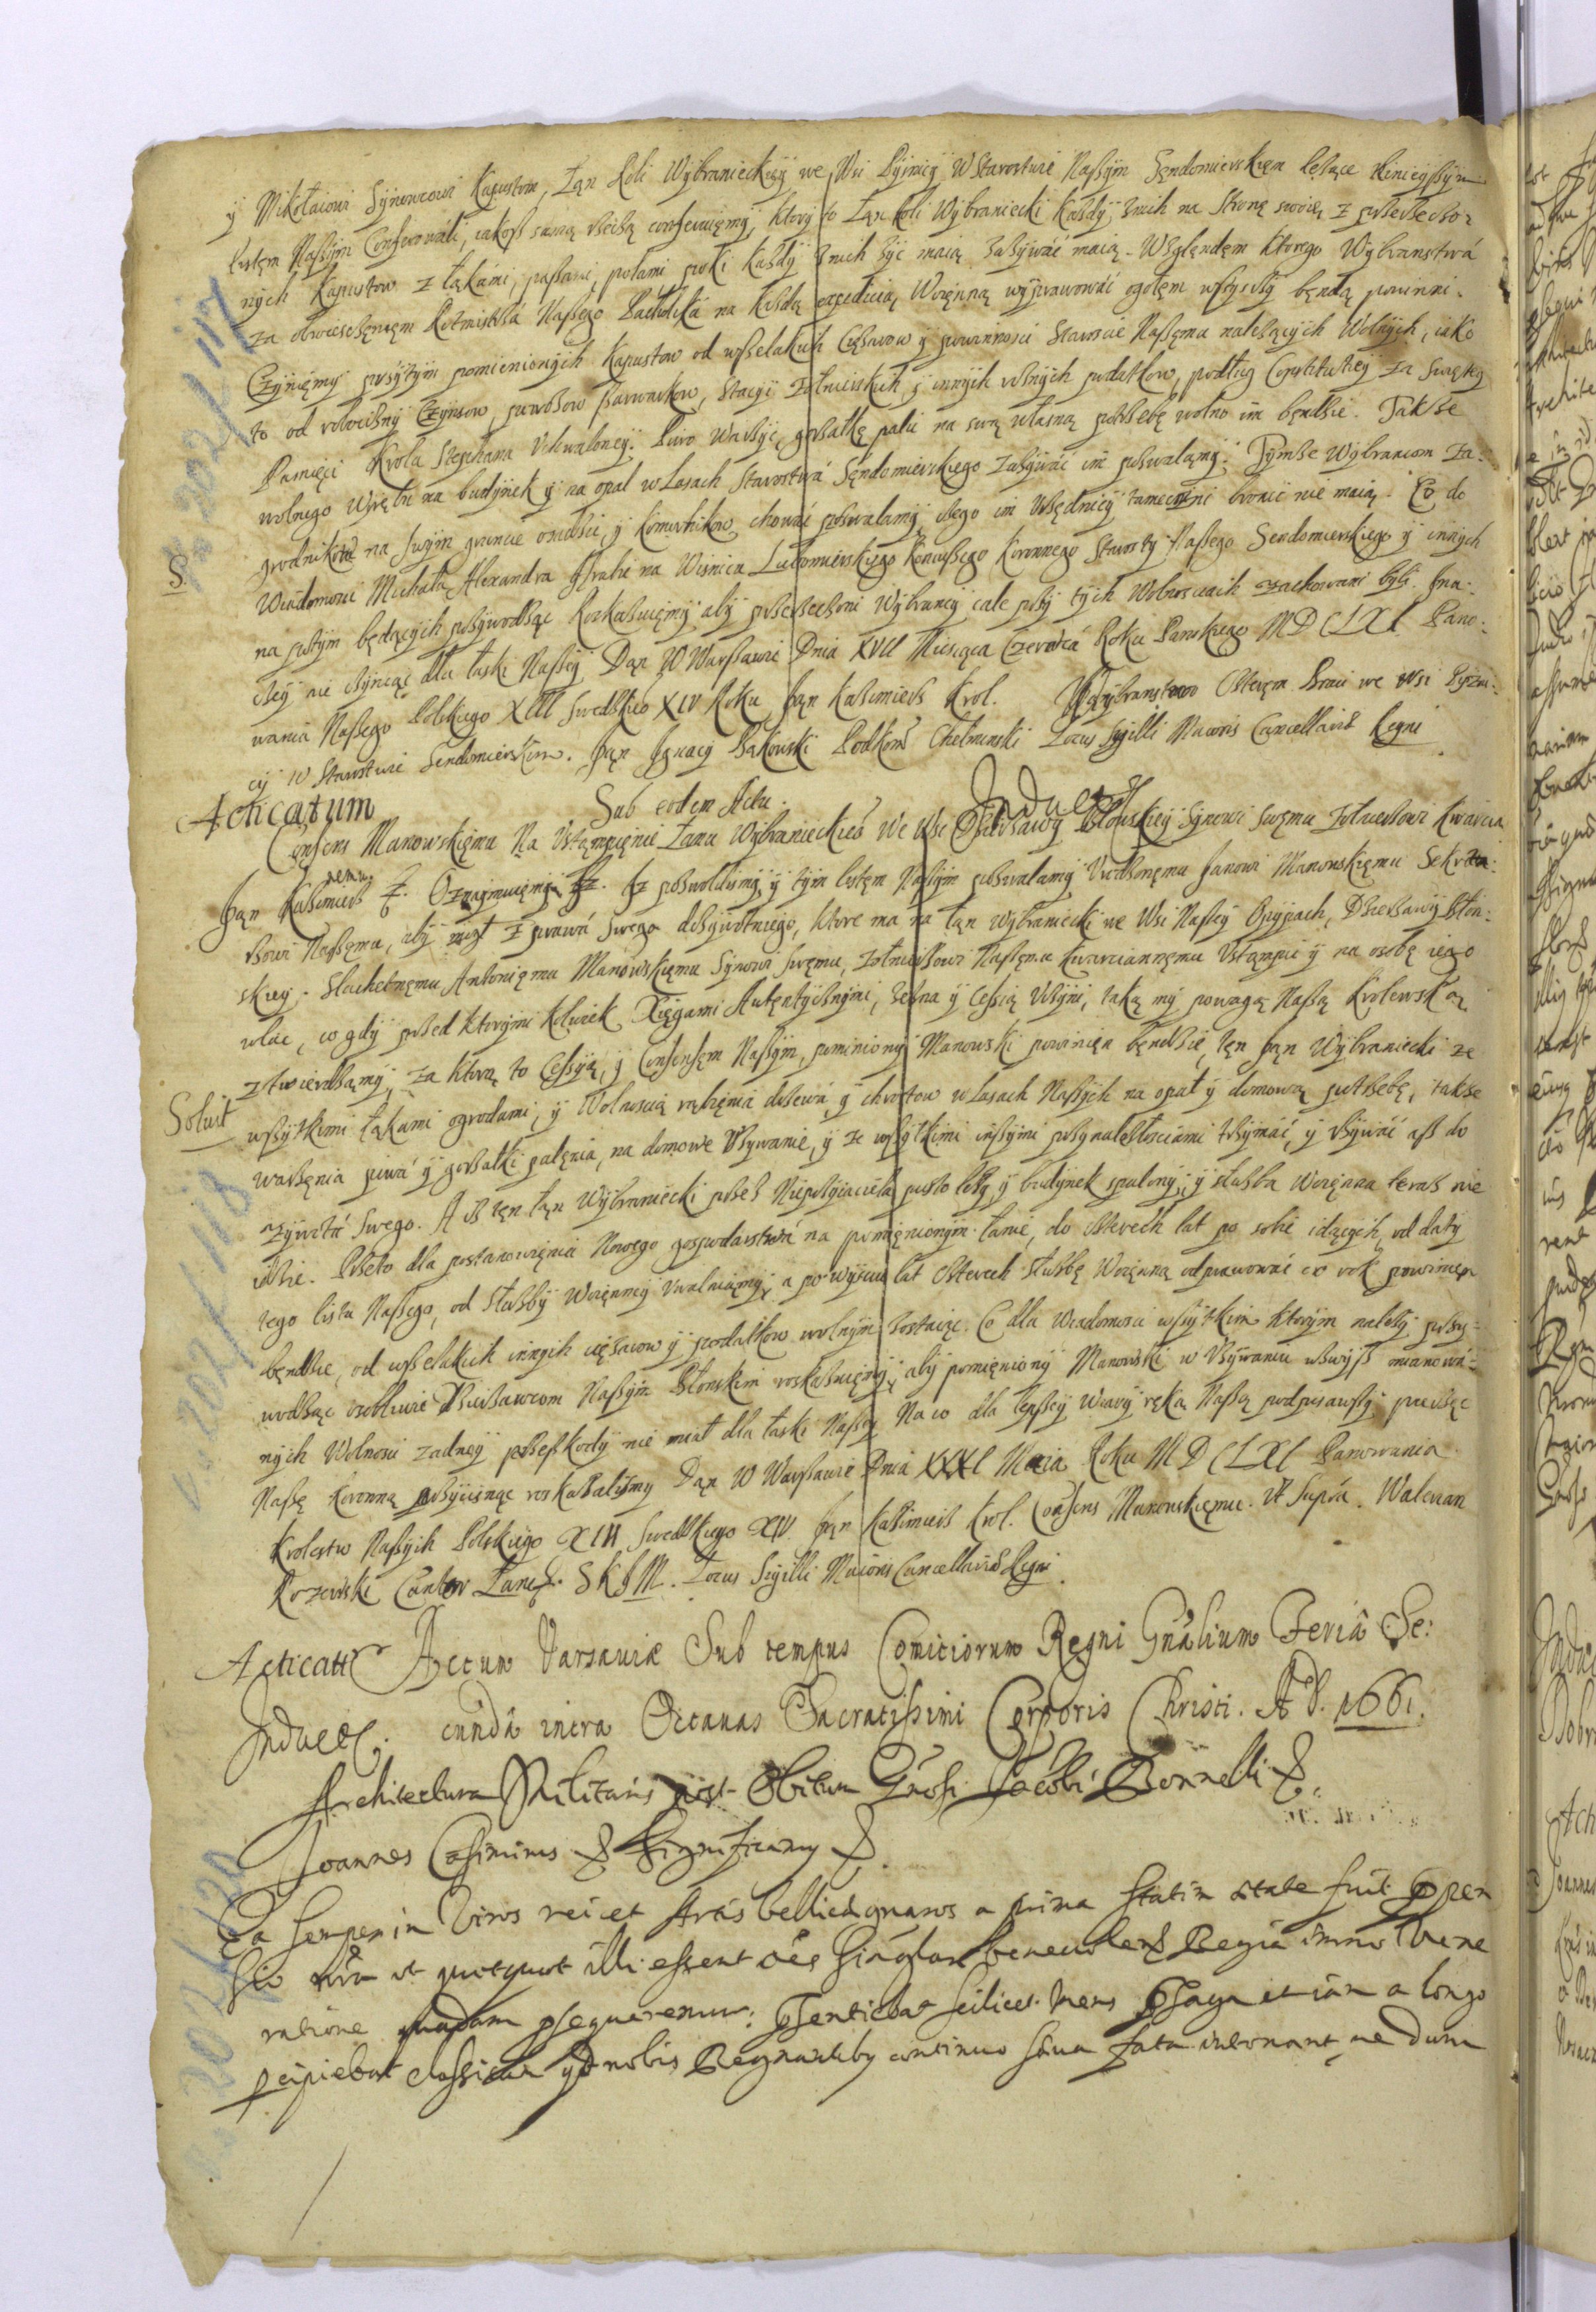 ÿ Mikołaiowi Synowcowi Kapustom, Łąn Roli Wÿbranieckiÿ we Wsi Pÿsnicÿ W Starostwie Naszÿm Sędomierskięm leżące ninieÿszÿm
listęm Naszÿm Conferowali, iakosz samą rzeczą conferuięmÿ, ktorÿ to Łąn Roli Wÿbraniecki każdÿ znich na stronę swoię z
nÿch Kapustow z łąkámi, paszami, polami poki każdÿ znich żÿć maią zażÿwáć maią. Względęm ktorego Wÿbranstwá
za obwieszczęnięm Rotmistrza Naszego Pachołká na każdą expedicią Woięnną wÿprawowáć ogołęm wszÿscÿ będą powinni.
Czÿnięmÿ przÿtÿm pomienionÿch Kapustow od wszelakich Ciężarow ÿ powinnosci Staroscie Naszęmu należącÿch Wolnÿch, iako
to od robociznÿ Czÿnszow, powozow szarwarkow, Stacÿi żołnierskich ÿ innÿch roznÿch podatkow, podług Constitutiÿ za swiętеÿ
Pamięci Krola Stephana Uchwalonеÿ. Piwo Warzÿć, gorzałkę palić na swą własną potrzebę wolno im będzie. Także
wolnego Wrębu na budÿnek ÿ na opał w Lasach Starostwá Sędomierskiego zażÿwáć im pozwalamÿ. Tÿmże Wÿbrancom Za-
grodnikow na swÿm gruncie osadzić, ÿ Komornikow chowáć pozwalamÿ, czego im Urzędnicÿ tamecznи bronić nie maią. Co do
Wiadomosci Michała Alexandra Hrabi na Wisniczu Lubomierskięgo Koniuszego Koronnego Starostÿ Naszego Sendomierskiego ÿ innÿch
na potÿm będącÿch przÿwodząc Rozkazuięmÿ abÿ przerzeczeni Wÿbrancÿ cale przÿ tÿch Wolnosciach zachowani bÿli. Ina-
czeÿ nie czÿniąc dla łaski Naszeÿ Dan W Warszawie Dnia XVII Miesiąca Czerwcá Roku Panskiego MDCLXI Pano-
wania Naszego Polskiego XIII Szwedzkieo XIV Roku Jan Kazimierz Krol. Wÿbranstwo Czterem Braci we Wsi Pÿsni-
cÿ w Starostwie Sendomierskim. Jan Ignacÿ Bąkowski Podkom Chełminski Locus Sigilli Maioris Cancellariæ Regni
Acticatum Sub eodem Actu. Induct
Consens Manowskiemu Na Ustąmpięnie Łanu Wÿbranieckieo We Wsi Dzierżawÿ Błonskieÿ Sÿnowi Swęmu Żołnierzowi Kwarcia
nemu.
Jan Kazimierz &. Oznaÿmuięmÿ &. Iz pozwolilismÿ, ÿ tÿm listęm Naszÿm pozwalamÿ Urodzonęmu Janowi Manowskięmu Sekreta-
rzowi Naszęmu, abÿ mogł z prawá swego dożÿwotniego, ktore ma na łan wÿbraniecki we Wsi Naszeÿ Opÿpach, Dzierżawÿ Błon-
skieÿ, Slachetnęmu Antonięmu Manowskięmu Sÿnowi swęmu, Żołnierzowi Naszęmu kwarciannęmu Ustąmpić ÿ na osobę iego
wlać, co gdÿ przed ktorÿmi kolwiek Xięgami Autęntÿcznÿmi, zezna ÿ Cessią Uczÿni, taką mÿ powagą Naszą Krolewską
Soluit ztwierdzamÿ, za ktorą to Cessÿą, ÿ Consensęm Naszÿm, pomieniоnÿ Manowski powinięn będzie, tęn Łan Wÿbraniecki ze
wszÿtkimi łąkami ogrodami, ÿ Wolnoscią rąbęnia drzewá, ÿ chrostow w Lasach Naszÿch na opał ÿ domową potrzebę, także
warzęnia piwá ÿ gorzałki palęnia, na domowe Uzÿwanie, ÿ ze wszÿtkimi inszÿmi przÿnależÿtosciami trzÿmáć, ÿ Uzÿwáć asz do
zÿwotá Swego. A iż tęn łan Wÿbraniecki przez Nieprzÿiaciela pusto leżÿ, ÿ budÿnek spalonÿ, ÿ służba Woięnna teraz nie
idzie. Przeto dla postanowięnia Nowego gospodarstwá na pomięnionÿm łanie, do czterech lat po sobie idącÿch, od datÿ
tego listu Naszego, od służbÿ Woięnneÿ Uwalniamÿ, a po wÿsciu lat czterech służbę Woięnną odprawować co rok powinięn
będzie, od wszelakich innÿch ciężarow ÿ podatkow wolnÿm zostaiąc. Co dla Wiadomosci wszÿtkim ktorÿm należÿ przÿ-
wodząc osobliwie Dzierżawcom Naszÿm Błonskim roskazuięmÿ, abÿ pomięnionÿ Manowski w Uzÿwaniu wzwÿsz mianowá-
nÿch Wolnosci zadneÿ przeszkodÿ nie miał dla łaski Naszeÿ Na co dla lepszeÿ Wiarÿ ręką Naszą podpisawszÿ pieczęć
Naszę Koronną przÿcisnąc roskazalismÿ Dan W Warszawie Dnia XXXI Maia Roku MDCLXI Panowania
Krolestw Naszÿch Polskiego XIII Szwedzkiego XIV Jan Kazimierz Krol. Consens Manowskięmu. Ut Supra. Walerian
Rozewski Cantor SKJM. Locus Sigilli Maioris Cancellariæ Regni.
Acticatr Actum Varsauiæ Sub tempus Comitiorum Regni Gnalium Feriâ Se:
Induct. cundâ intra Octauas Sacratissimi Corporis Christi. A D. 1661.
Architectura Militaris post Obitum Gnosi Jacobi Bonnelli &.
Joannes Casimirus & Significamus &.
Ea semper in Viros rei et Artis bellicæ gnaros a prima statim ætate fuit ppen
sio nra ut quotquot illi essent oes singlari beneuolentia Regia immo Vene
ratione quadam psequeremur: Psentiebat scilicet Mens psaga et iam a longo
pcipiebat classicum qd nobis Regnantiby continuo sæua fata intonant, ne dum
P. 202/117
P. 202/118
P. 202/120
§